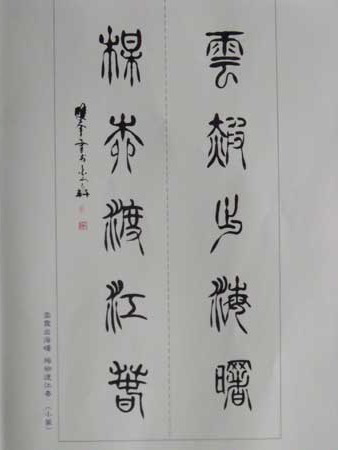 雲霞出海曙
梅柳渡江春
雲霞出海曙 梅柳渡江春 （小篆）